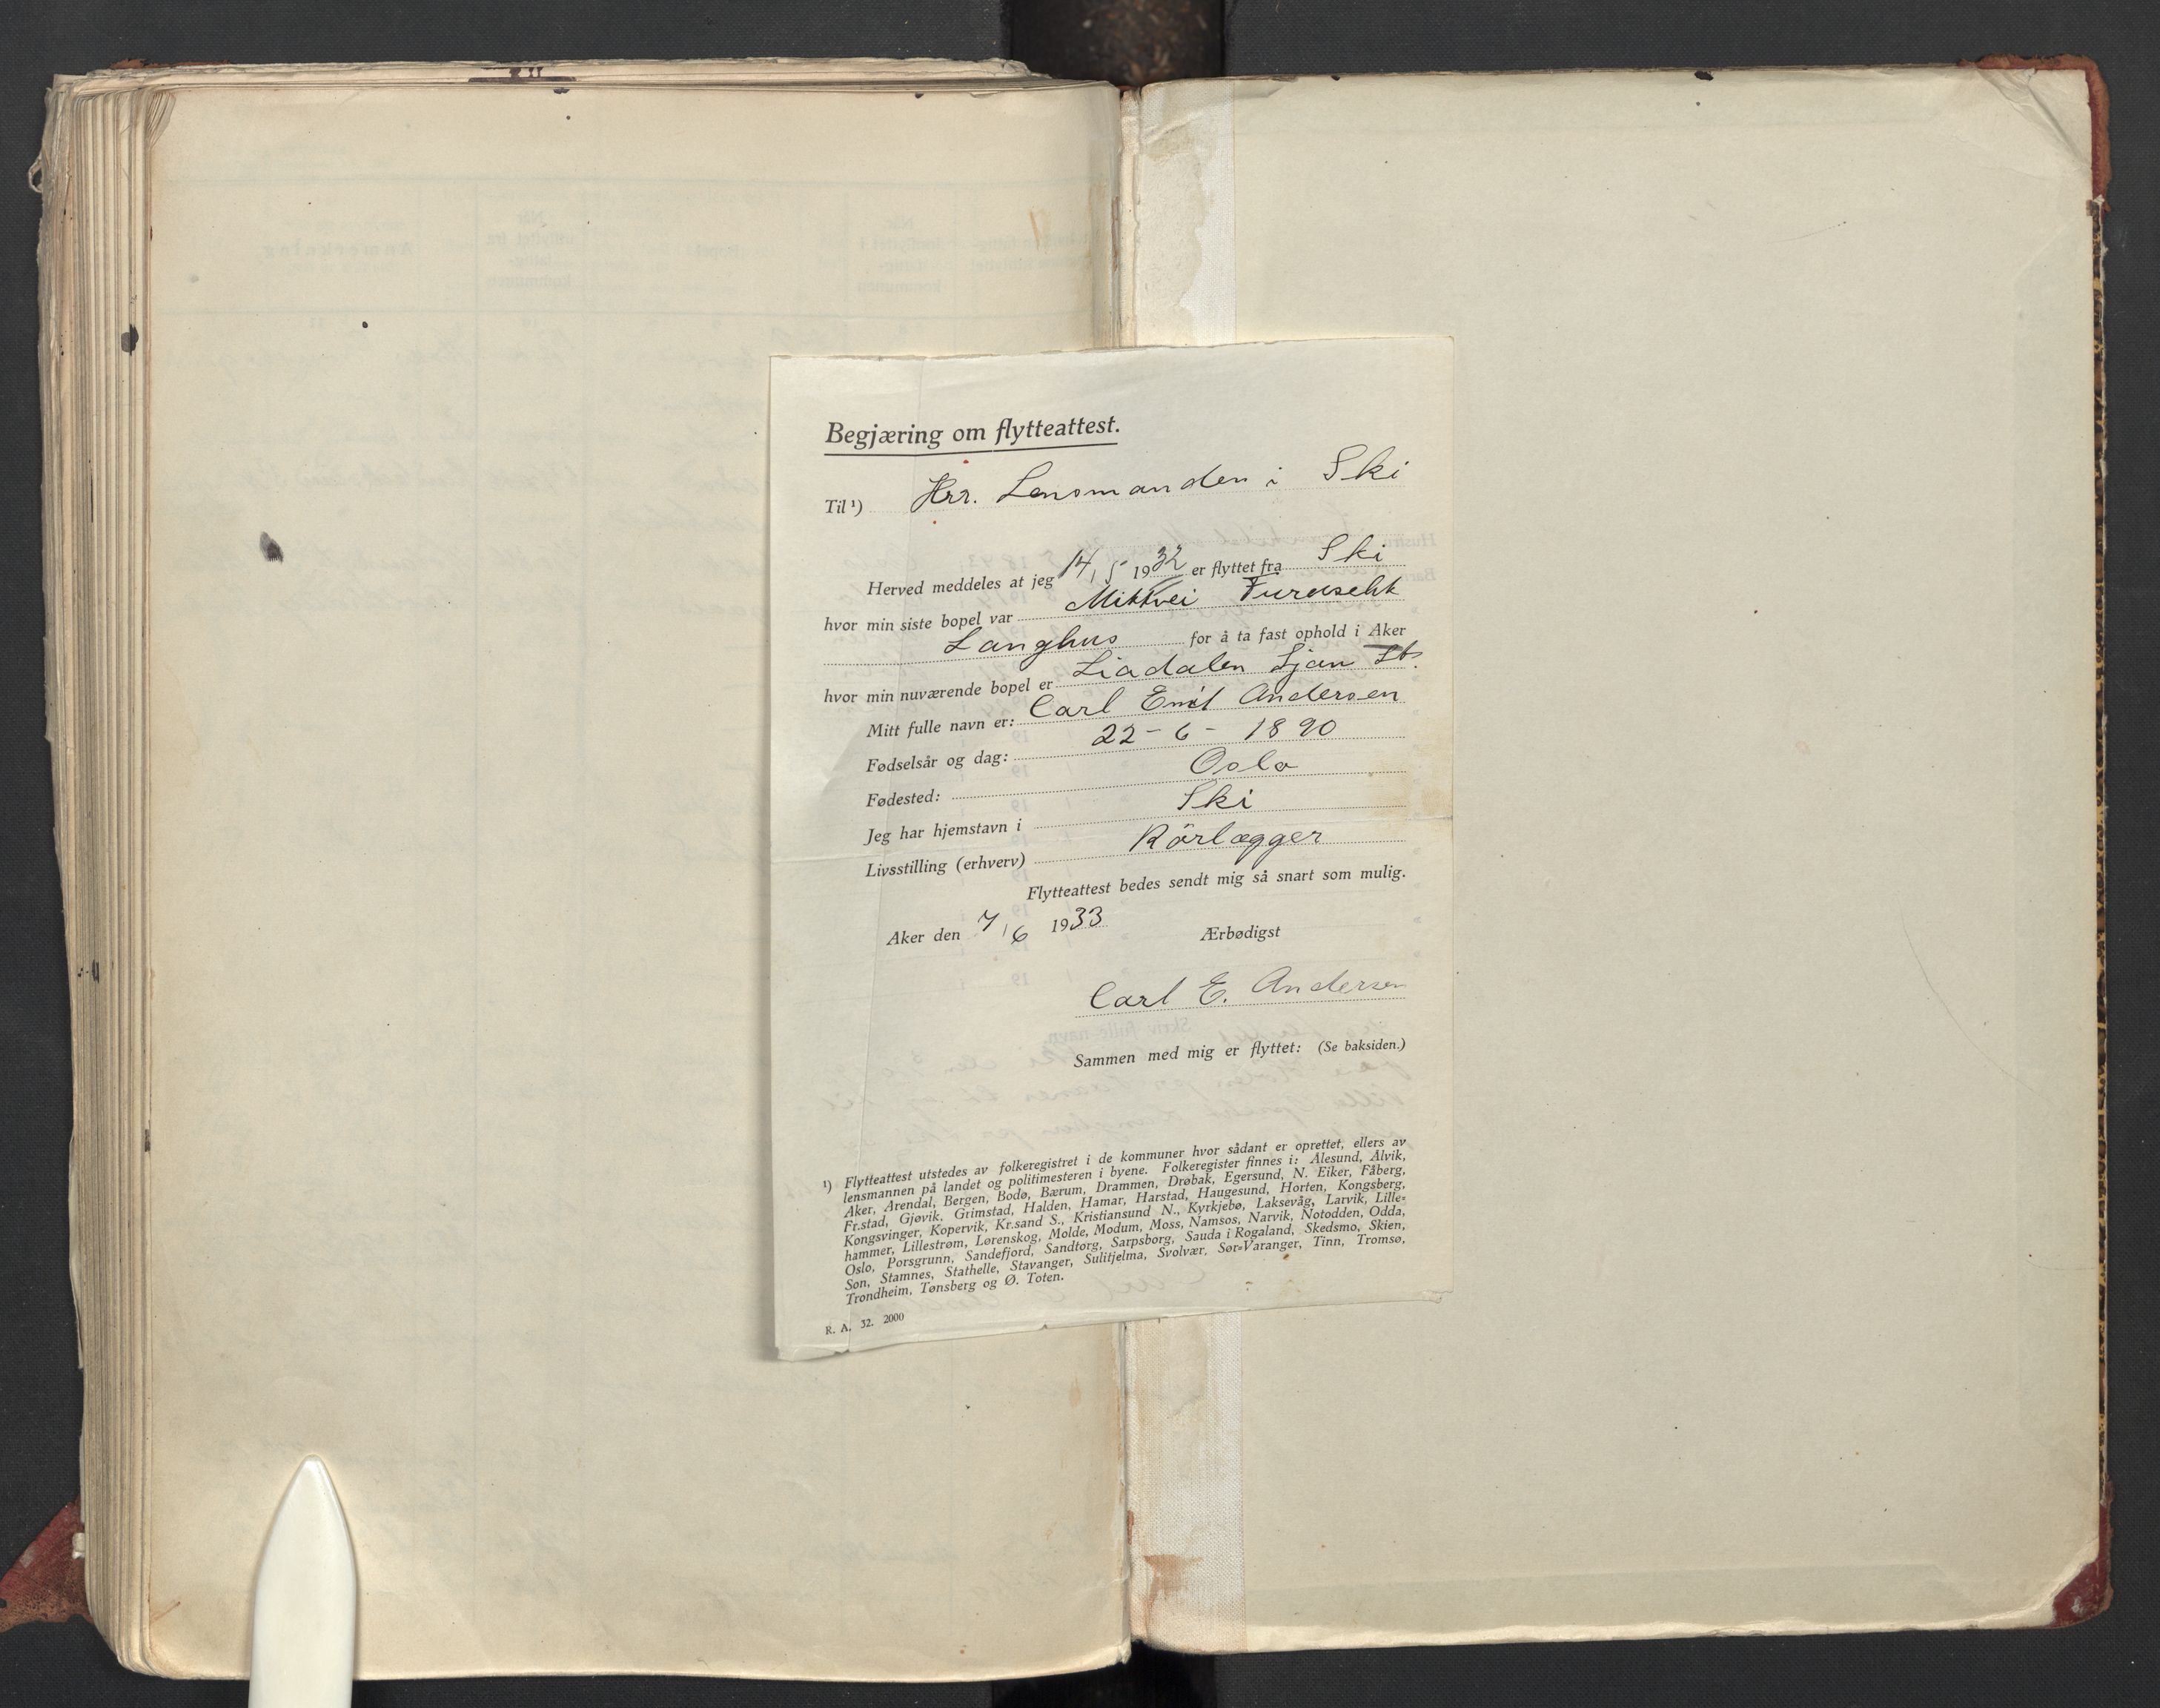 Begjæring om flytteattest.
Til ¹) Hrr. Lensmanden i Ski
Herved meddeles at jeg 14/5 1932 er flyttet fra Ski
hvor min siste bopel var Mikkvei
Langhus for å ta fast ophold i Aker
hvor min nuværende bopel er Liadalen Ljan St.
Mitt fulle navn er: Carl Emil Andersen
Fødselsår og dag: 22-6-1890
Fødested: Oslo
Jeg har hjemstavn i Ski
Livsstilling (erhverv) Rörlægger
Flytteattest bedes sendt mig så snart som mulig.
Aker den 7/6 1933 Ærbødigst
Carl E. Andersen
Sammen med mig er flyttet: (Se baksiden.)
¹) Flytteattest utstedes av folkeregistret i de kommuner hvor sådant er oprettet, ellers av
lensmannen på landet og politimesteren i byene. Folkeregister finnes i: Ålesund, Ålvik,
Aker, Arendal, Bergen, Bodø, Bærum, Drammen, Drøbak, Egersund, N. Eiker, Fåberg,
Fr.stad, Gjøvik. Grimstad, Halden, Hamar, Harstad, Haugesund, Horten, Kongsberg,
Kongsvinger, Kopervik, Kr.sand S., Kristiansund N., Kyrkjebø, Laksevåg, Larvik, Lille-
hammer, Lillestrøm, Lørenskog, Molde, Modum, Moss, Namsos, Narvik, Notodden, Odda,
Oslo, Porsgrunn, Sandefjord, Sandtorg, Sarpsborg, Sauda i Rogaland, Skedsmo, Skien,
Son, Stamnes, Stathelle, Stavanger, Sulitjelma, Svolvær, Sør-Varanger, Tinn, Tromsø,
Trondheim, Tønsberg og Ø. Toten.
R. A. 32. 2000